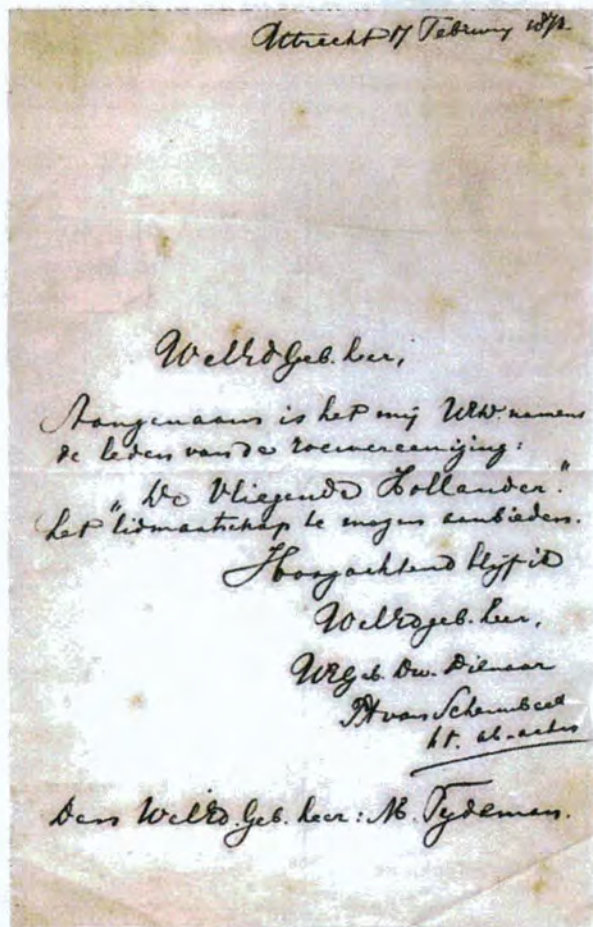 Utrecht 17 February
WelEdGeb. heer,
Aangenaam is het mij UEw. namens
de leden van de roeivereeniging:
"De Vliegende Hollander."
het lidmaatschap te mogen aanbieden.
Hoogachtend blijf ik
WelEdgeb. heer,
UEGeb. Dw. Dienaar
van
h.t. ab-actis
Den WelEd. Geb. heer: M. Tydeman.